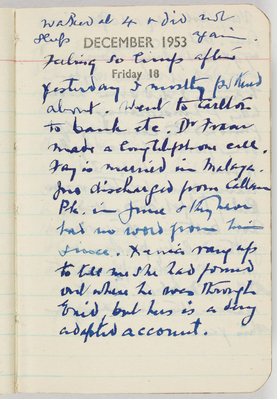 waked at 4 & did not
sleep again.
DECEMBER 1953
Friday 18
Feeling so limp after
yesterday I mostly pottered
about. Went to Carlton
to bank etc. Dr
made a long telephone call.
Fay is married in Malaya.
discharged from Callan
Pk. in June & they have
had no word from him
since. Xenia rang up
to tell me she had found
out where he was through
Enid, but hers is a very
adapted account.